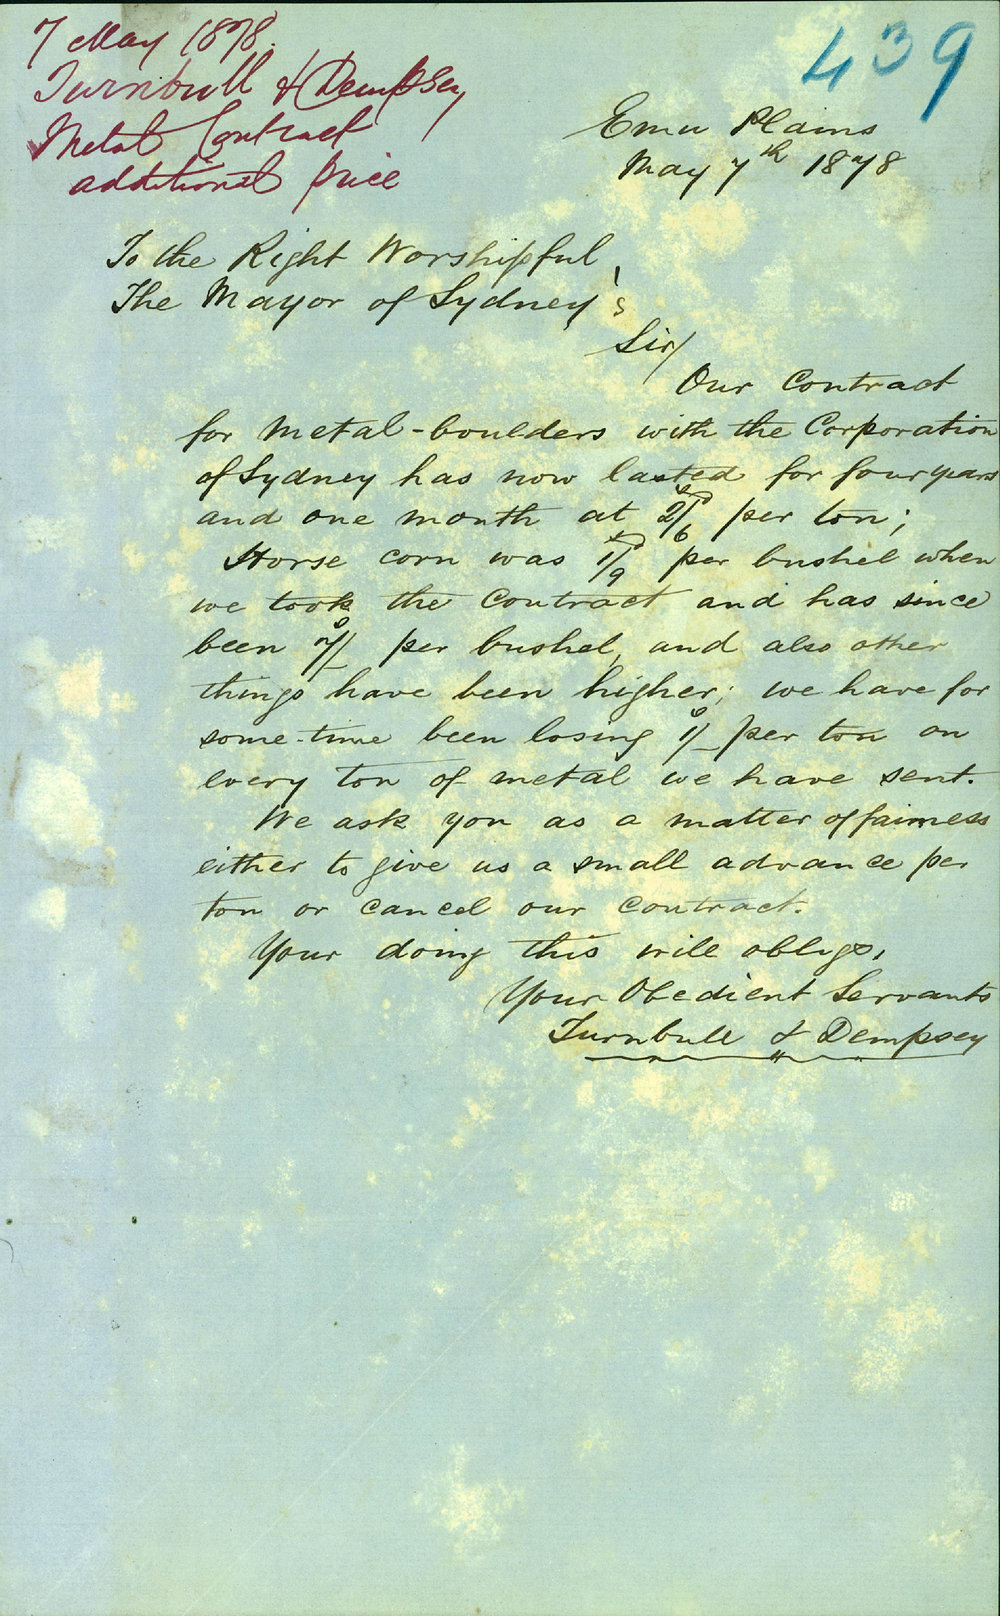 7 May 1878.
Turnbull & Dempsey
Metal Contract
additional price
439
Emu Plains
May 7th 1878
To the Right Worshipful
The Mayor of Sydney
Sir/
Our Contract
for Metal-boulders with the Corporation
of Sydney has now lasted for four years
and one month at 2s/6d per ton;
Horse corn was 1s/9d per bushel when
we took the Contract and has since
been 7s/- per bushel, and also other
things have been higher; we have for
some-time been losing 1s/- per ton on
every ton of metal we have sent.
We ask you as a matter of fairness
either to give us a small advance per
ton or cancel our Contract.
Your doing this will oblige,
Your Obedient Servants
Turnbull & Dempsey